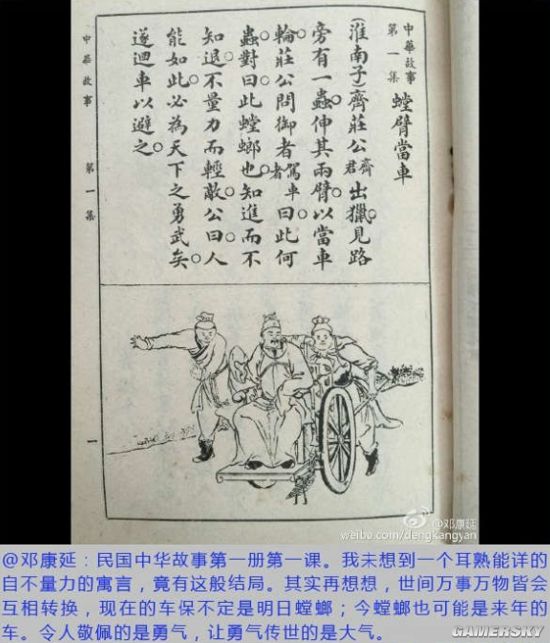 中華故事
第一集
螳臂當車
(淮南子)齊莊公齊君出獵。見路
旁有一蟲。伸其兩臂。以當車
輪。莊公問御者駕車者曰。此何
蟲。對曰。此螳螂也。知進而不
知退。不量力而輕敵。公曰。人
能如此。必為天下之勇武矣。
遂迴車以避之。
中華故事 第一集 一
@邓康延
weibo.com/dengkangyan
@邓康延：民国中华故事第一册第一课。我未想到一个耳熟能详的
自不量力的寓言，竟有这般结局。其实再想想，世间万事万物皆会
互相转换，现在的车保不定是明日螳螂；今螳螂也可能是来年的
车。令人敬佩的是勇气，让勇气传世的是大气。
GAMERSKY